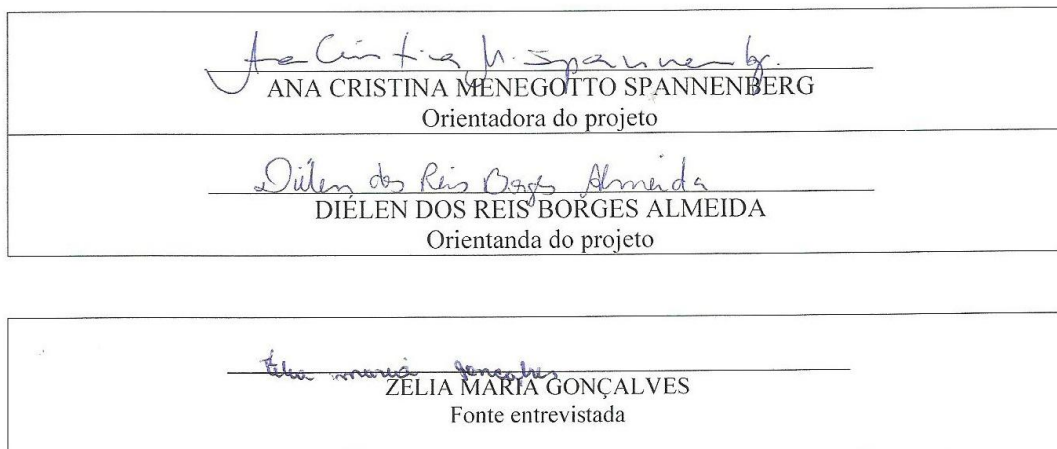 Ana Cristina M. Spannenberg.
ANA CRISTINA MENEGOTTO SPANNENBERG
Orientadora do projeto
Diélen dos Reis Borges Almeida
DIÉLEN DOS REIS BORGES ALMEIDA
Orientanda do projeto
Zélia maria gonçalves
ZÉLIA MARIA GONÇALVES
Fonte entrevistada